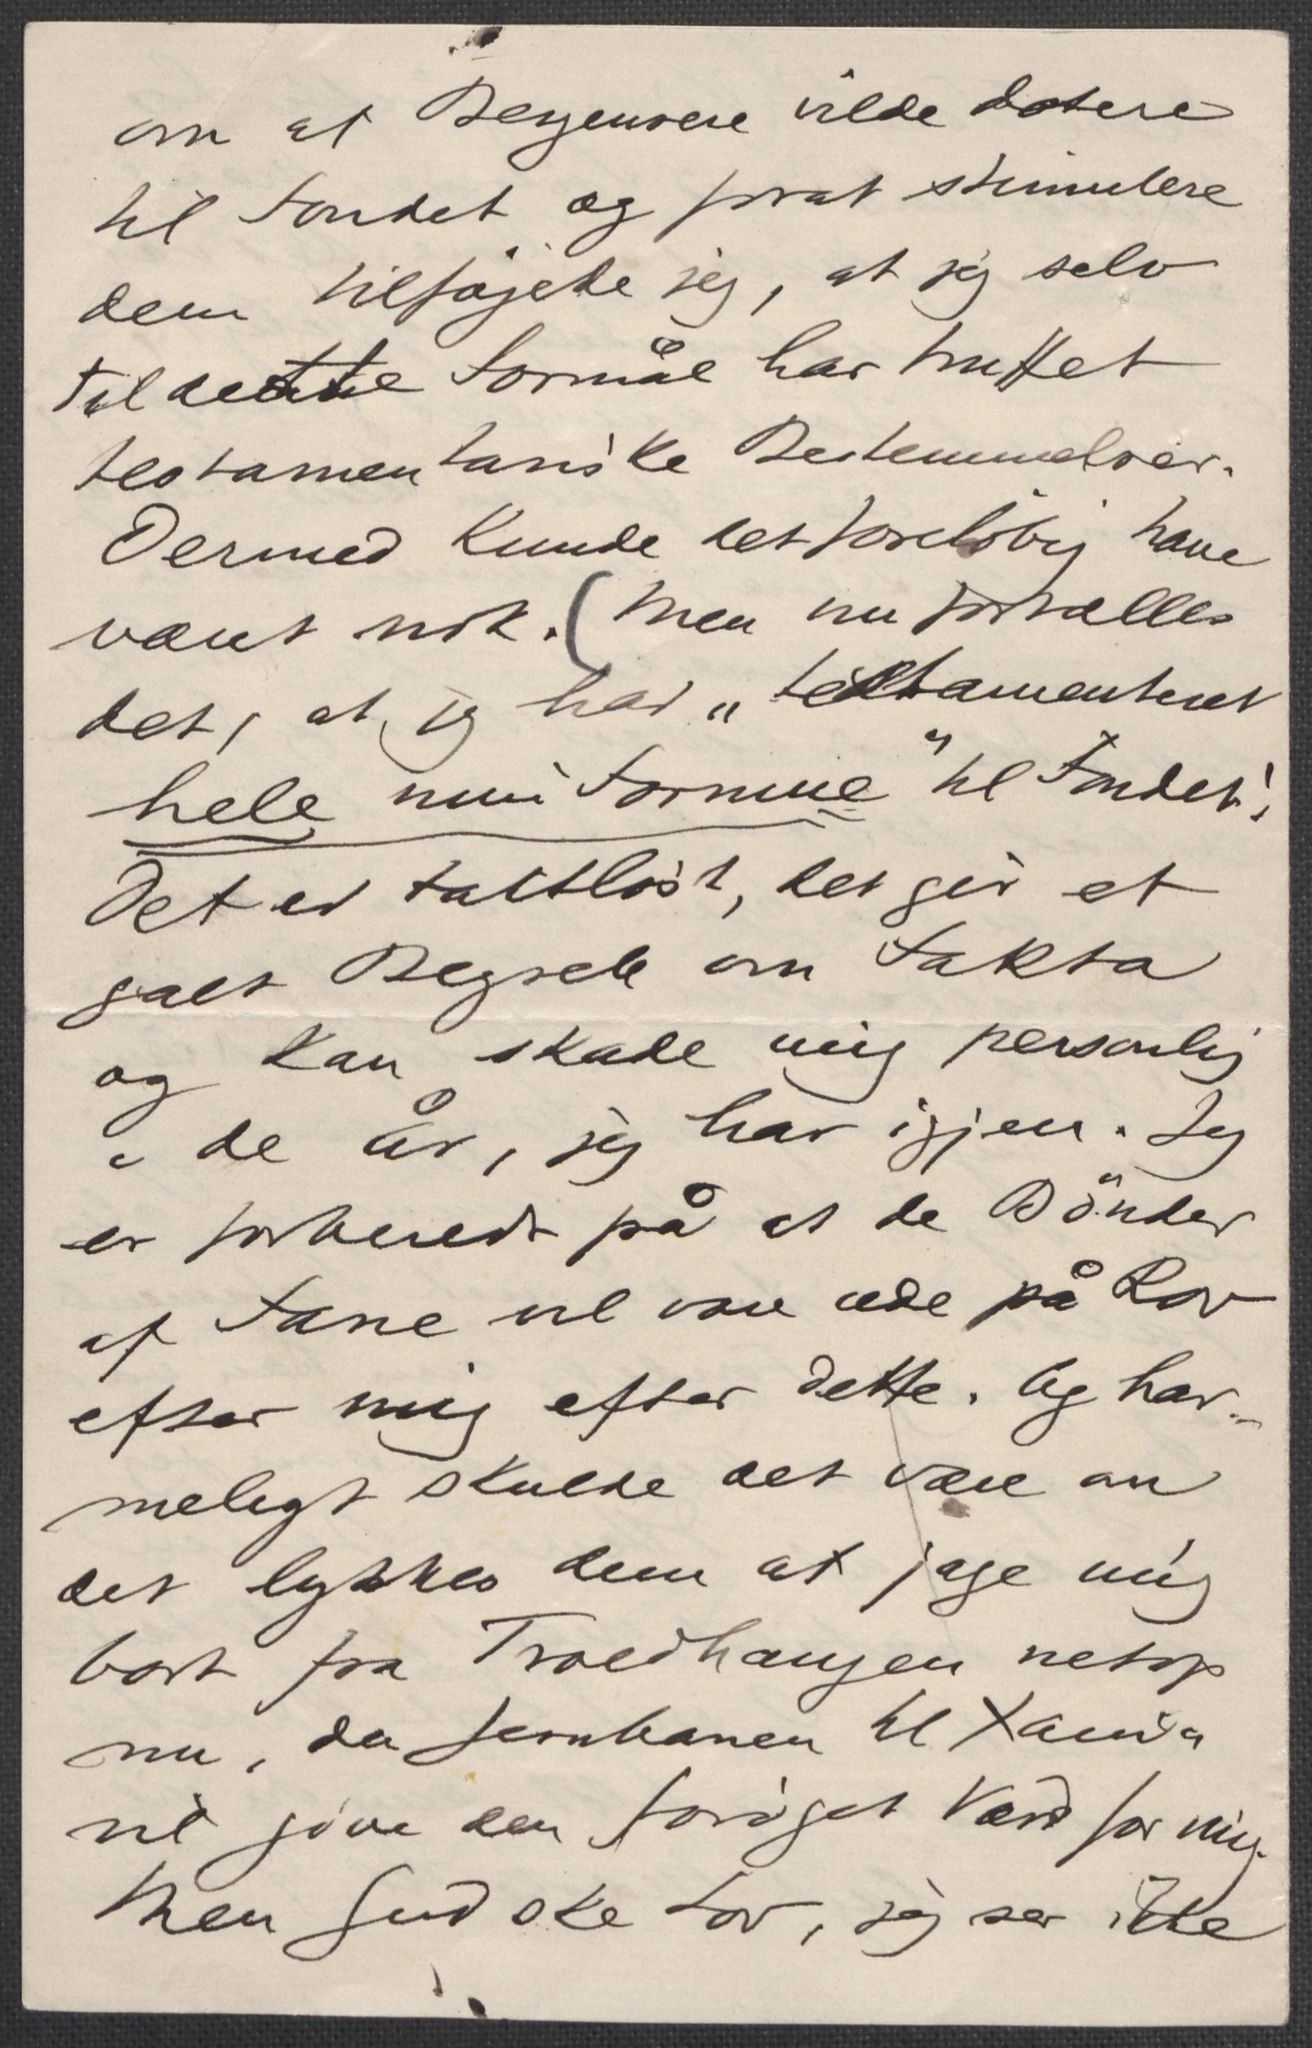 om at Bergensere vilde dotere
til Fondet og forat stimulere
dem tilføjede jeg, at jeg selv
til dette Formål har truffet
testamentariske Bestemmelser.
Dermed kunde det foreløbig have
været nok. (Men nu fortælles
det, at jeg har „testamenteret
hele min Formue" til Fondet!
Det er taktløst, det gir et
galt Begreb om Fakta
og kan skade mig personlig
i de år, jeg har igjen. Jeg
er forberedt på at de Bönder
af Fane vil være ude på Rov
efter mig efter dette. Og har-
meligt skulde det være om
det lykkes dem at jage mig
bort fra Troldhaugen netop
nu, da Jernbanen til Xania
vil give den forøget Værd for mig.
Men Gud ske Lov, jeg ser ikke